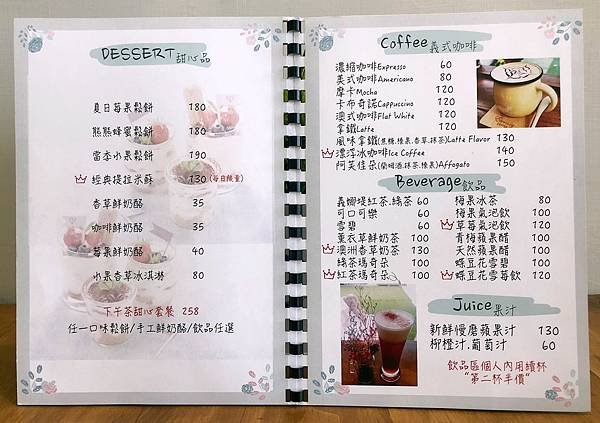 DESSERT 甜心品
夏日莓果鬆餅 180
熊熊蜂蜜鬆餅 180
當季水果鬆餅 190
經典提拉米蘇 130 (每日限量)
香草鮮奶酪 35
咖啡鮮奶酪 35
莓果鮮奶酪 40
水果香草冰淇淋 80
下午茶甜心套餐 258
任一口味鬆餅/手工鮮奶酪/飲品任選
Coffee 義式咖啡
濃縮咖啡Espresso 60
美式咖啡Americano 80
摩卡Mocha 120
卡布奇諾Cappuccino 120
澳式咖啡Flat White 120
拿鐵Latte 120
風味拿鐵(焦糖.榛果.香草.抹茶)Latte Flavor 130
漂浮冰咖啡Ice Coffee 140
阿芙佳朵(蘭姆酒.抹茶.榛果)Affogato 150
Beverage 飲品
義姆堤紅茶.綠茶 60
可口可樂 60
雪碧 60
薰衣草鮮奶茶 100
澳洲香草奶茶 130
綠茶瑪奇朵 100
紅茶瑪奇朵 100
梅果冰茶 80
梅果氣泡飲 100
草莓氣泡飲 120
青梅蘋果醋 100
天然蘋果醋 100
蝶豆花雪碧 100
蝶豆花雪莓飲 120
Juice 果汁
新鮮慢磨蘋果汁 130
柳橙汁.葡萄汁 60
飲品區個人內用續杯
"第二杯半價"